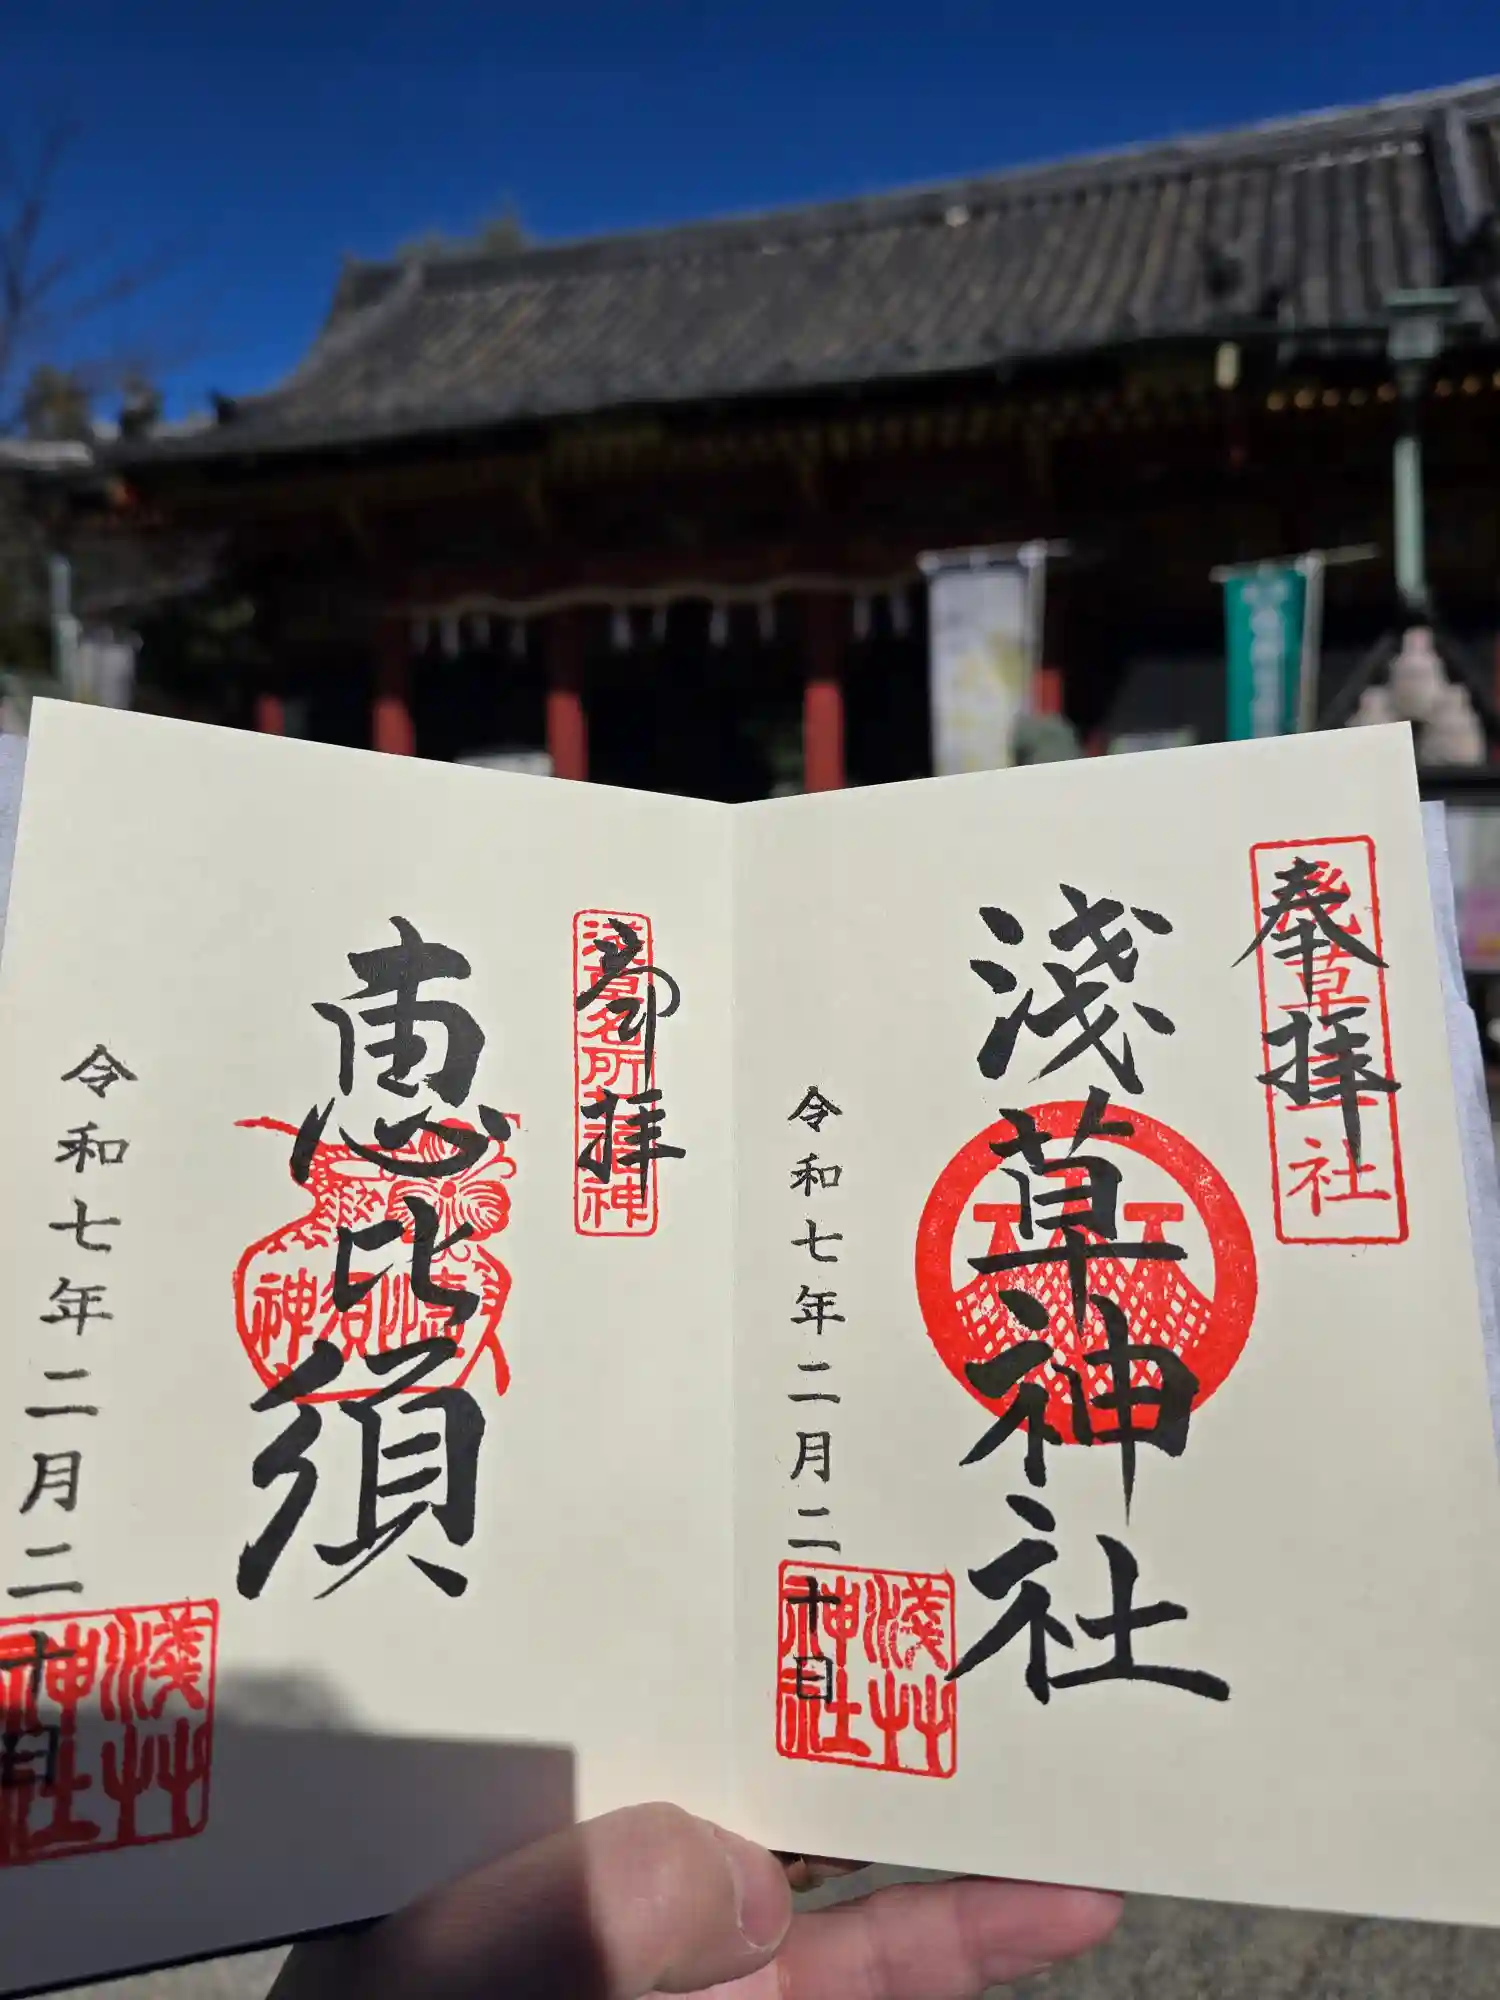 奉拝
淺草三社
淺草神社
令和七年二月二十日
淺草
神社
奉拝
浅草名所七福神
恵比須
令和七年二月二十日
淺草
神社